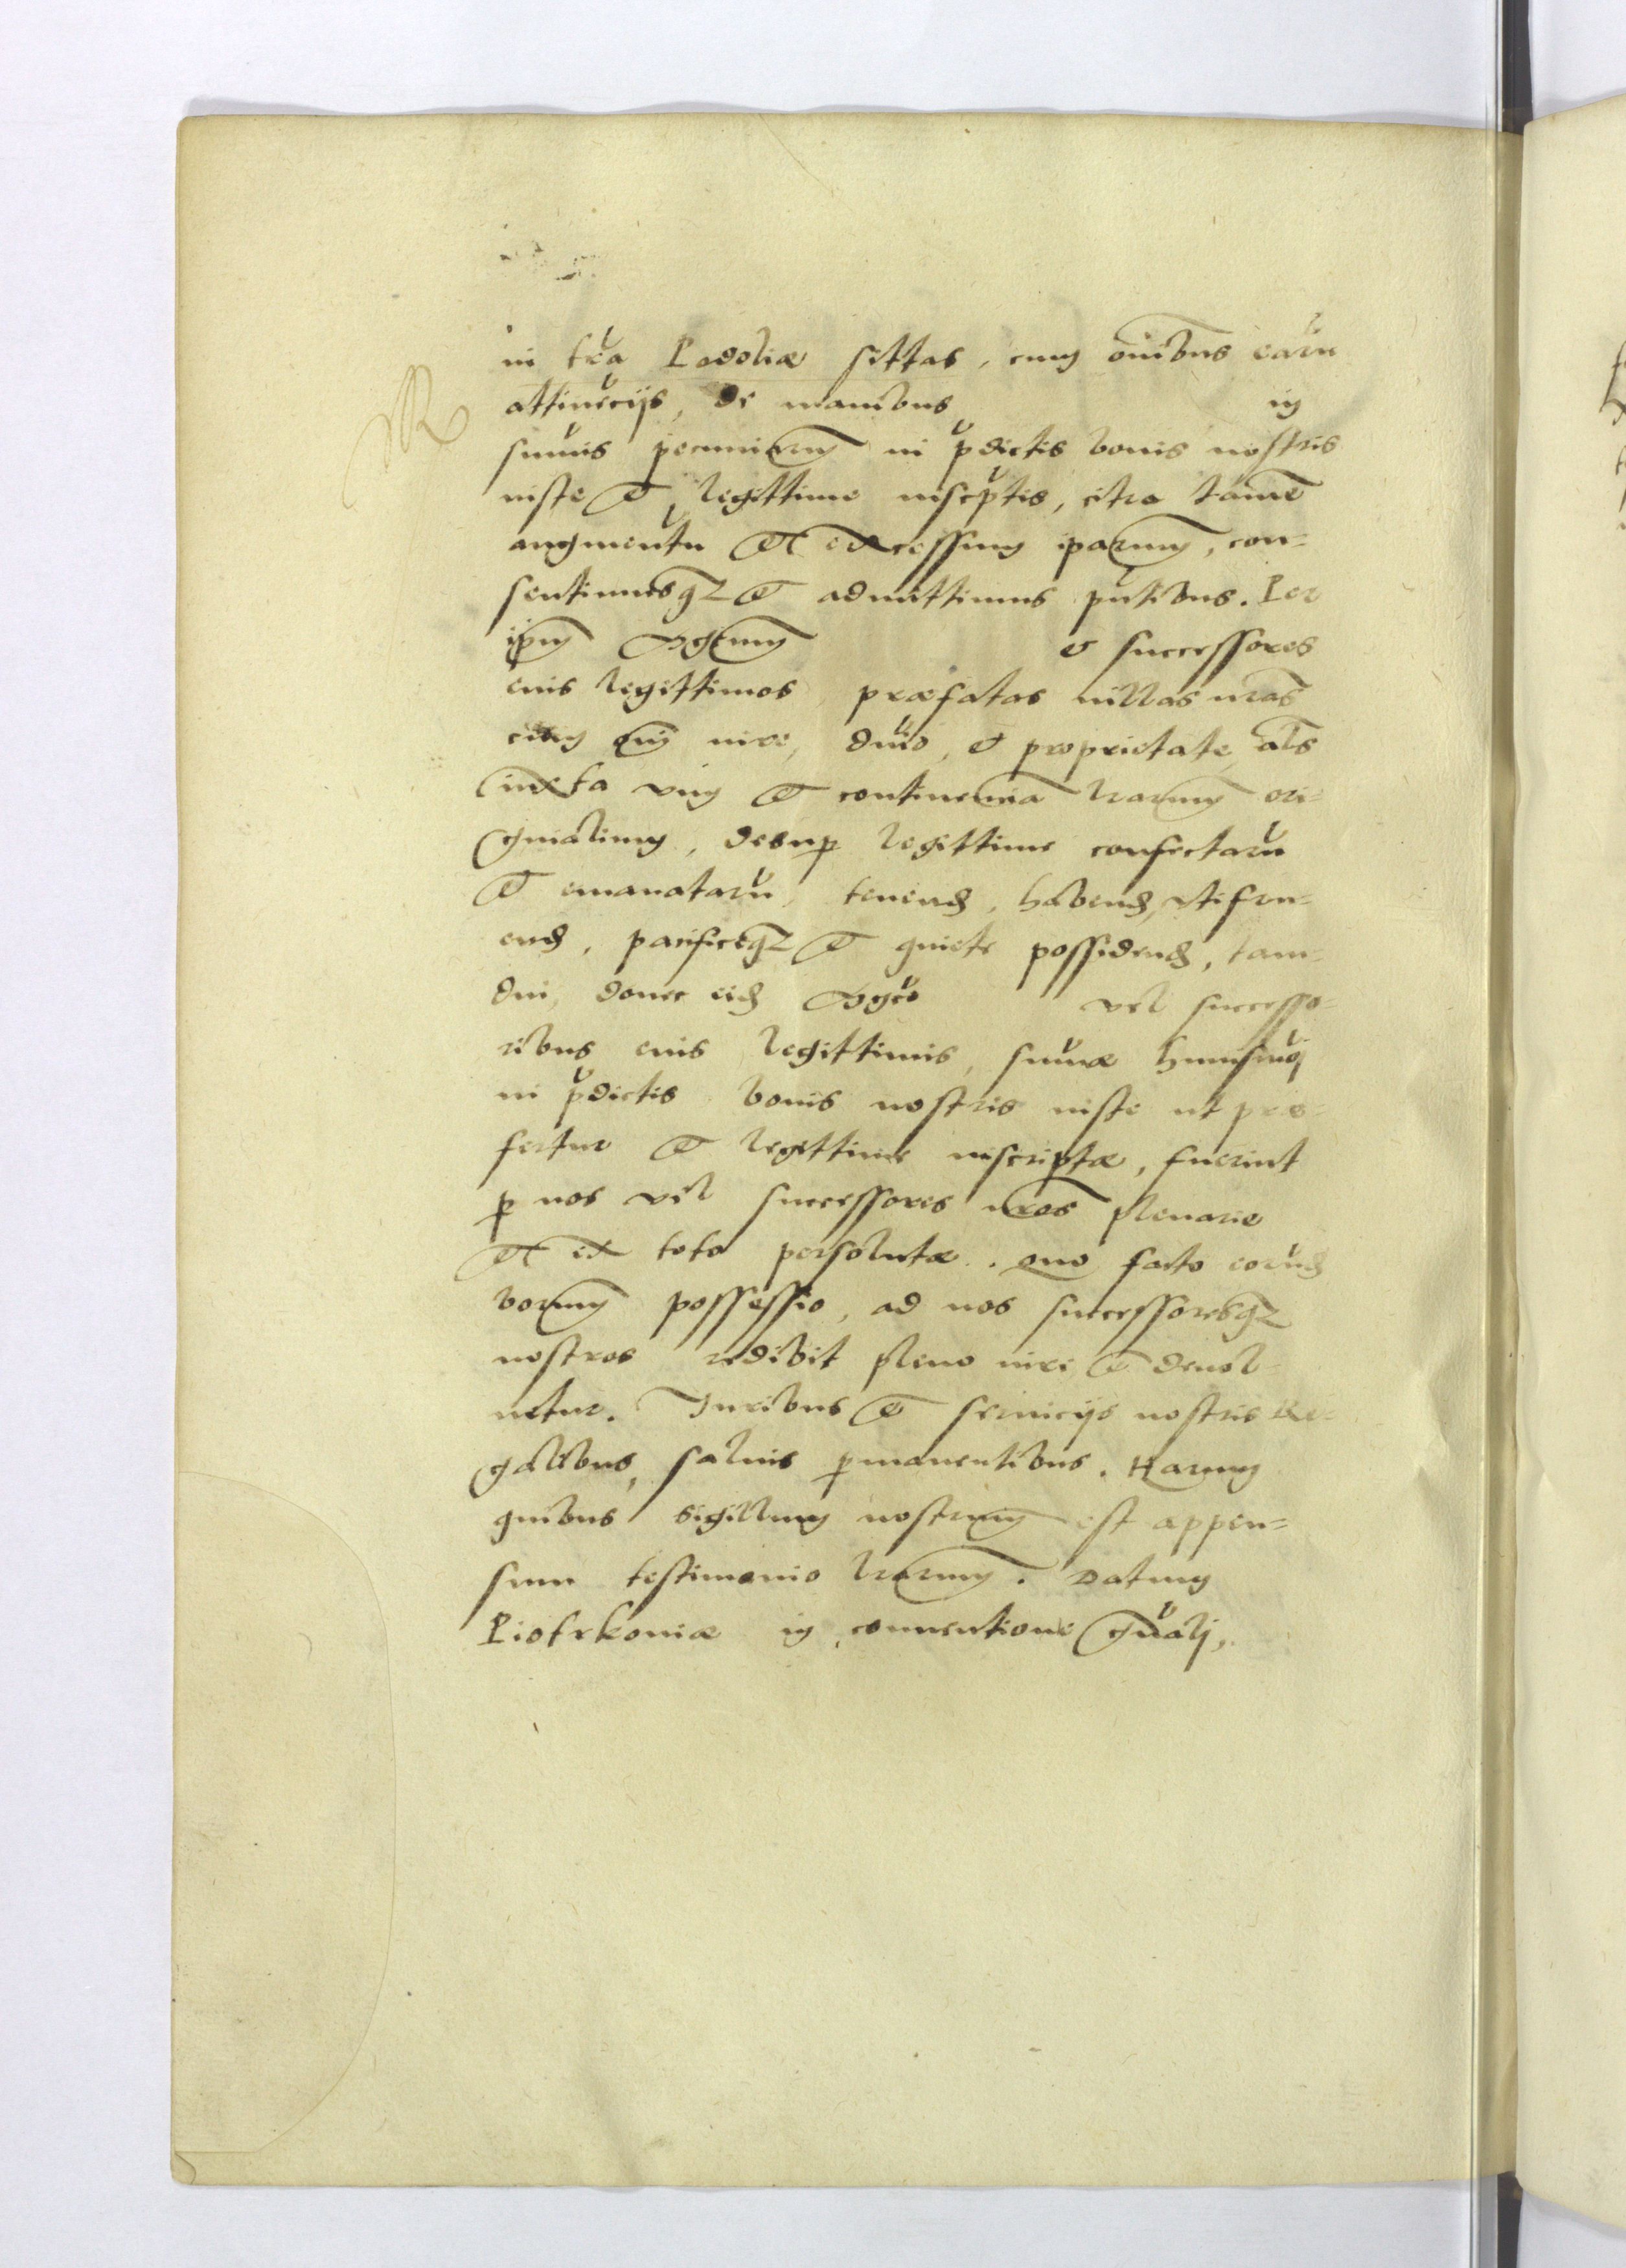 in tra Podoliæ sittas, cum omibus earu
attinecijs, de manibus in
sumis pecuniarum in pdictis bonis nostris
iuste et legittime inscptis, citra tame
augmentu et excessum iparum, con=
sentimusq et admittimus pntibus. Per
ipm & successores
eius legittimos præfatas uillas nras
cum om iure, dnio, & proprietate als
iuxta vim et continencia lrarum ori=
ginalium, desup legittime confectaru
et emanataru, tenend, habend, vtifru=
end, pacificeq et quiete possidend, tam=
diu, donec eid vel successo=
ribus eius legittimis, sumæ huiusmoj
in pdictis bonis nostris iuste ut pro=
fertur et legittime inscriptæ, fuerint
p nos vel successores nros plenarie
et ex toto persolutæ. quo facto eorud
bonorum possessio, ad nos successoresq
nostros redibit pleno iure et deuol=
uetur. Juribus et seruicijs nostris Re=
galibus, saluis pmanentibus. Harum
quibus sigillum nostrum est appen=
sum testimonio lrarum. Datum
Piotrkouiæ in conuentione gnalj,